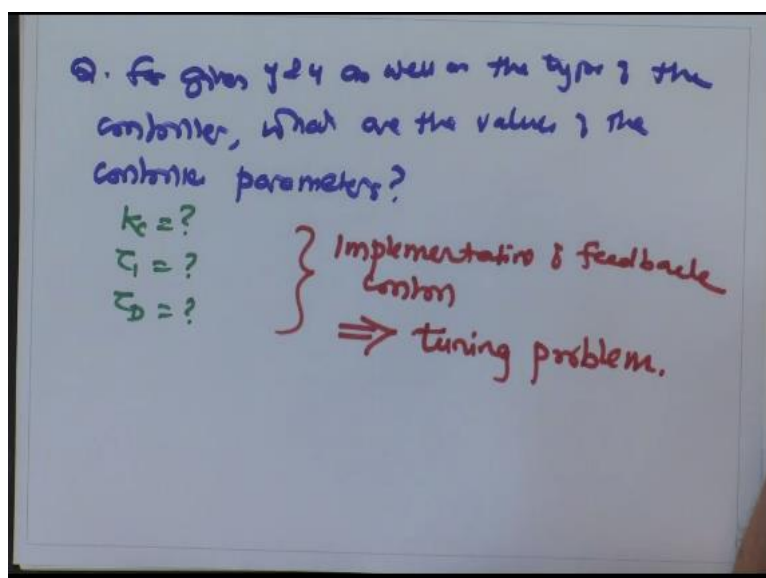 Q. For given y & u as well as the type of the
controller, what are the values of the
controller parameters?
Kc = ?
τI = ?
τD = ?
Implementation of feedback
control
⇒ tuning problem.